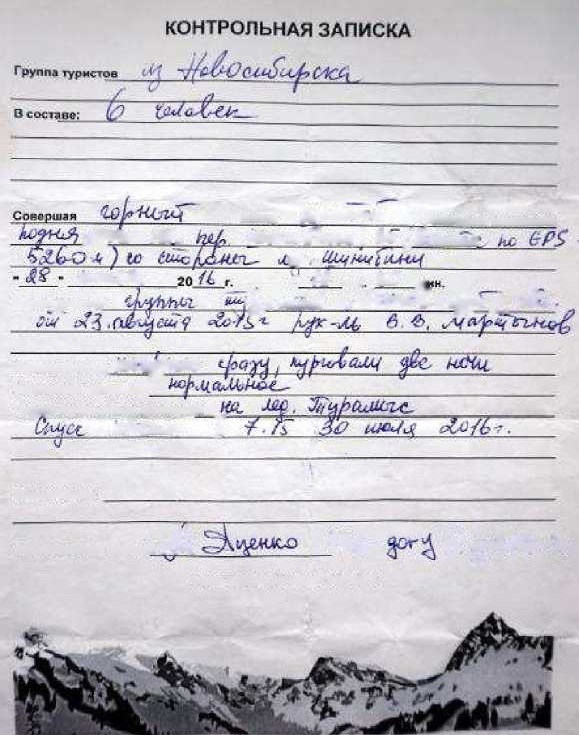 КОНТРОЛЬНАЯ ЗАПИСКА
Группа туристов из Новосибирска
В составе: 6 человек
Совершая горный
подня пер по GPS
5260 м) со стороны л.
"28" 2016 г. мин.
группы
от 23 августа 2015 г рук-ль В. В. Мартынов
сразу, пурговали две ночи
нормальное
на лед. Турамыс
Спуск 7.15 30 июля 2016 г.
Яценко